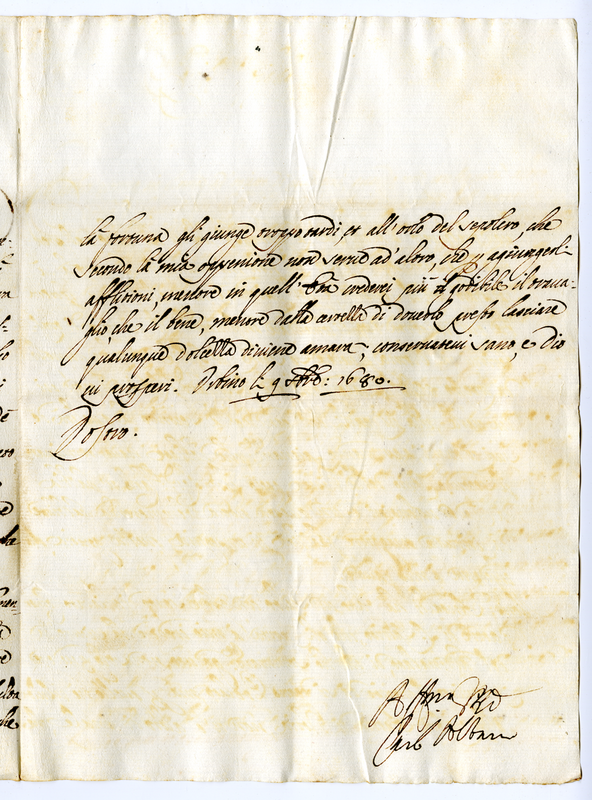 la fortuna gli giunge troppo tardi, et all'orlo del sepolcro, che
secondo la mia oppenione non serve ad' altro, che p agiungerli
afflitioni, mentre in quell' hora crederei più godibile il trava-
glio, che il bene, mentre dalla certezza di doverlo presto lasciare
qualunque dolcezza diviene amara; conservatevi sano, e Dio
vi prosperi. Urbino li 9 1680.
Vostro.
Aff.mo
Carlo Albani